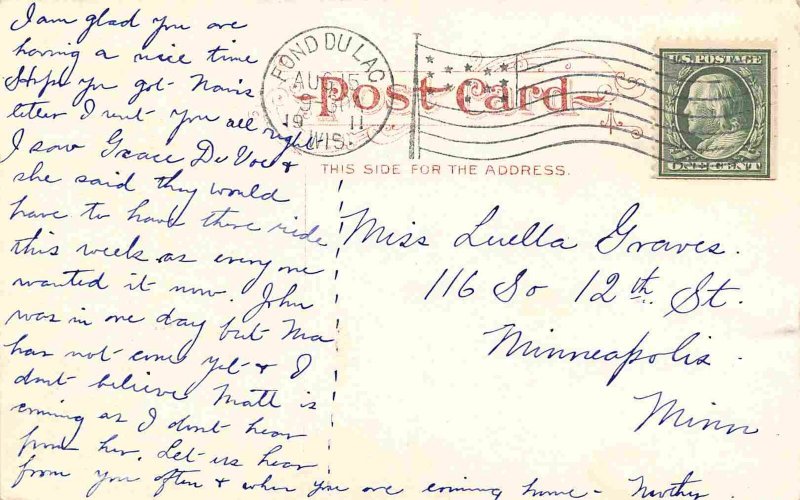 I am glad you are
having a nice time
Hope you got Navis
letter I sent you all right
I saw Grace DeVoe &
she said they would
have to have there ride
this week as every one
wanted it now. John
was in one day but Ma
has not come yet & I
dont believe Matt is
coming as I dont hear
from her. Let us hear
from you often & when you are coming home - Mother
FOND DU LAC
AUG 5
1911
WIS.
Post Card
THIS SIDE FOR THE ADDRESS.
U.S. POSTAGE
ONE CENT
Miss Luella Graves.
116 So 12th St.
Minneapolis
Minn